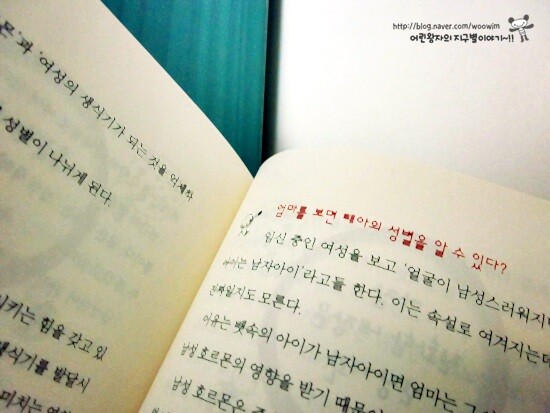 http://blog.naver.com/woowjm
어린왕자의 지구별이야기~!!
몬'과 '여성의 생식기가 되는 것을 억제하
성별이 나뉘게 된다.
시키는 힘을 갖고 있
생식기를 발달시
미치는
엄마를 보면 태아의 성별을 알 수 있다?
임신 중인 여성을 보고 '얼굴이 남성스러워지면
아이는 남자아이'라고들 한다. 이는 속설로 여겨지는데
진짜일지도 모른다.
이유는 뱃속의 아이가 남자아이면 엄마는 그
남성 호르몬의 영향을 받기 때문
남성 호르몬은